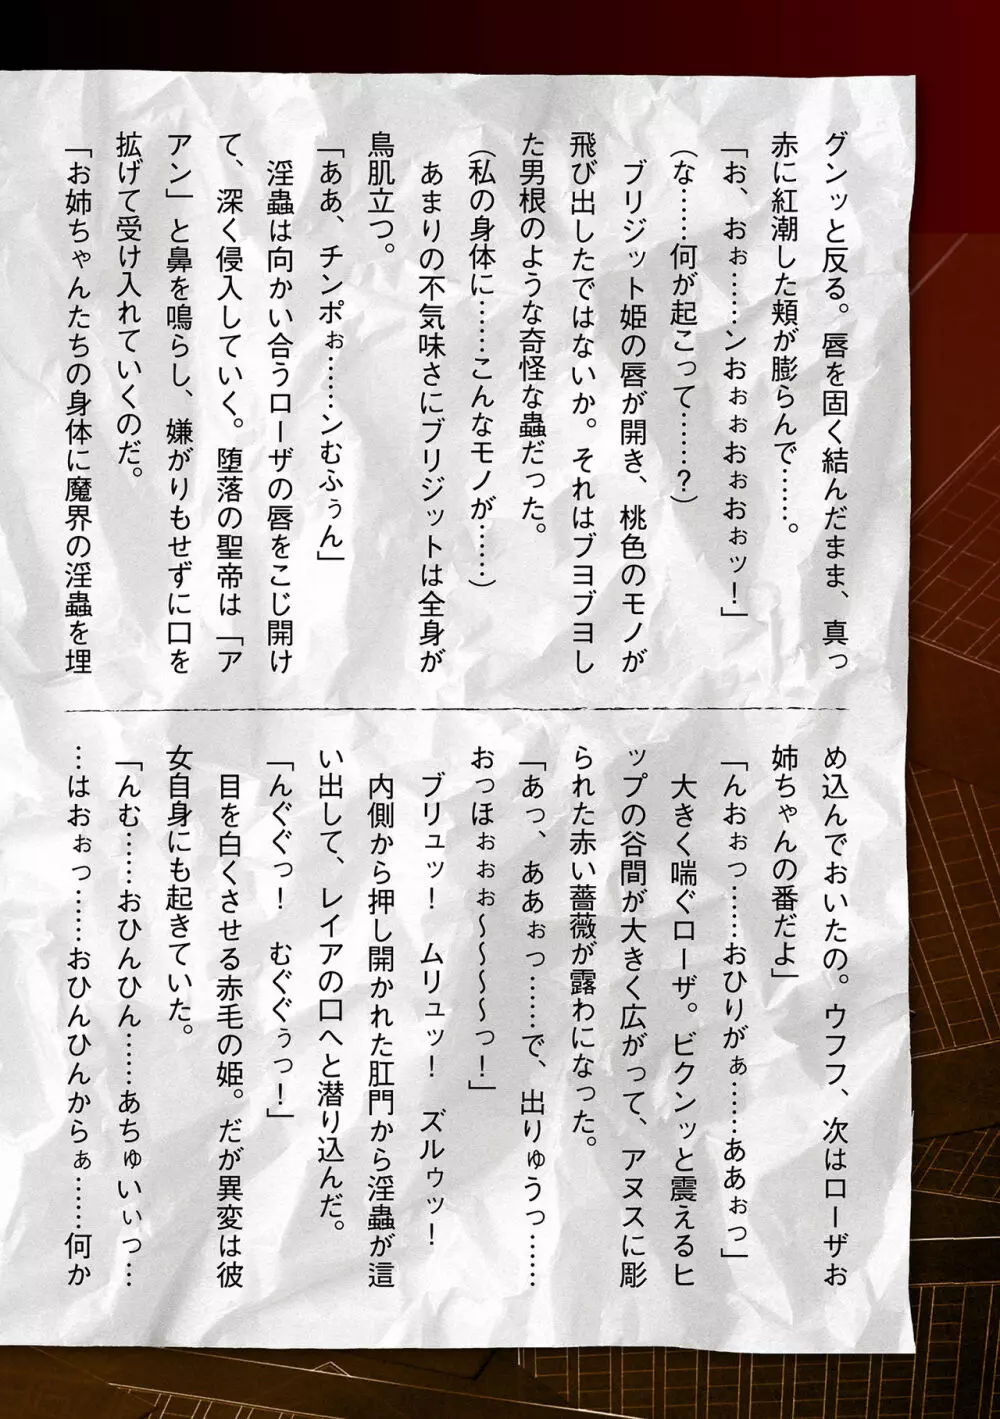 グンッと反る。唇を固く結んだまま、真っ
赤に紅潮した頬が膨らんで……。
「お、おぉ……ンおぉぉおぉおぉッ！」
(な……何が起こって……？)
　ブリジット姫の唇が開き、桃色のモノが
飛び出したではないか。それはブヨブヨし
た男根のような奇怪な蟲だった。
(私の身体に……こんなモノが……)
　あまりの不気味さにブリジットは全身が
鳥肌立つ。
「ああ、チンポぉ……ンむふぅん」
　淫蟲は向かい合うローザの唇をこじ開け
て、深く侵入していく。堕落の聖帝は「ア
アン」と鼻を鳴らし、嫌がりもせずに口を
拡げて受け入れていくのだ。
「お姉ちゃんたちの身体に魔界の淫蟲を埋
め込んでおいたの。ウフフ、次はローザお
姉ちゃんの番だよ」
「んおぉっ……おひりがぁ……ああぉっ」
　大きく喘ぐローザ。ビクンッと震えるヒ
ップの谷間が大きく広がって、アヌスに彫
られた赤い薔薇が露わになった。
「あっ、ああぉっ……で、出りゅうっ……
おっほぉぉぉ～～～～っ！」
　ブリュッ！　ムリュッ！　ズルゥッ！
　内側から押し開かれた肛門から淫蟲が這
い出して、レイアの口へと潜り込んだ。
「んぐぐっ！　むぐぐぅっ！」
　目を白くさせる赤毛の姫。だが異変は彼
女自身にも起きていた。
「んむ……おひんひん……あちゅいぃっ…
…はおぉっ……おひんひんからぁ……何か